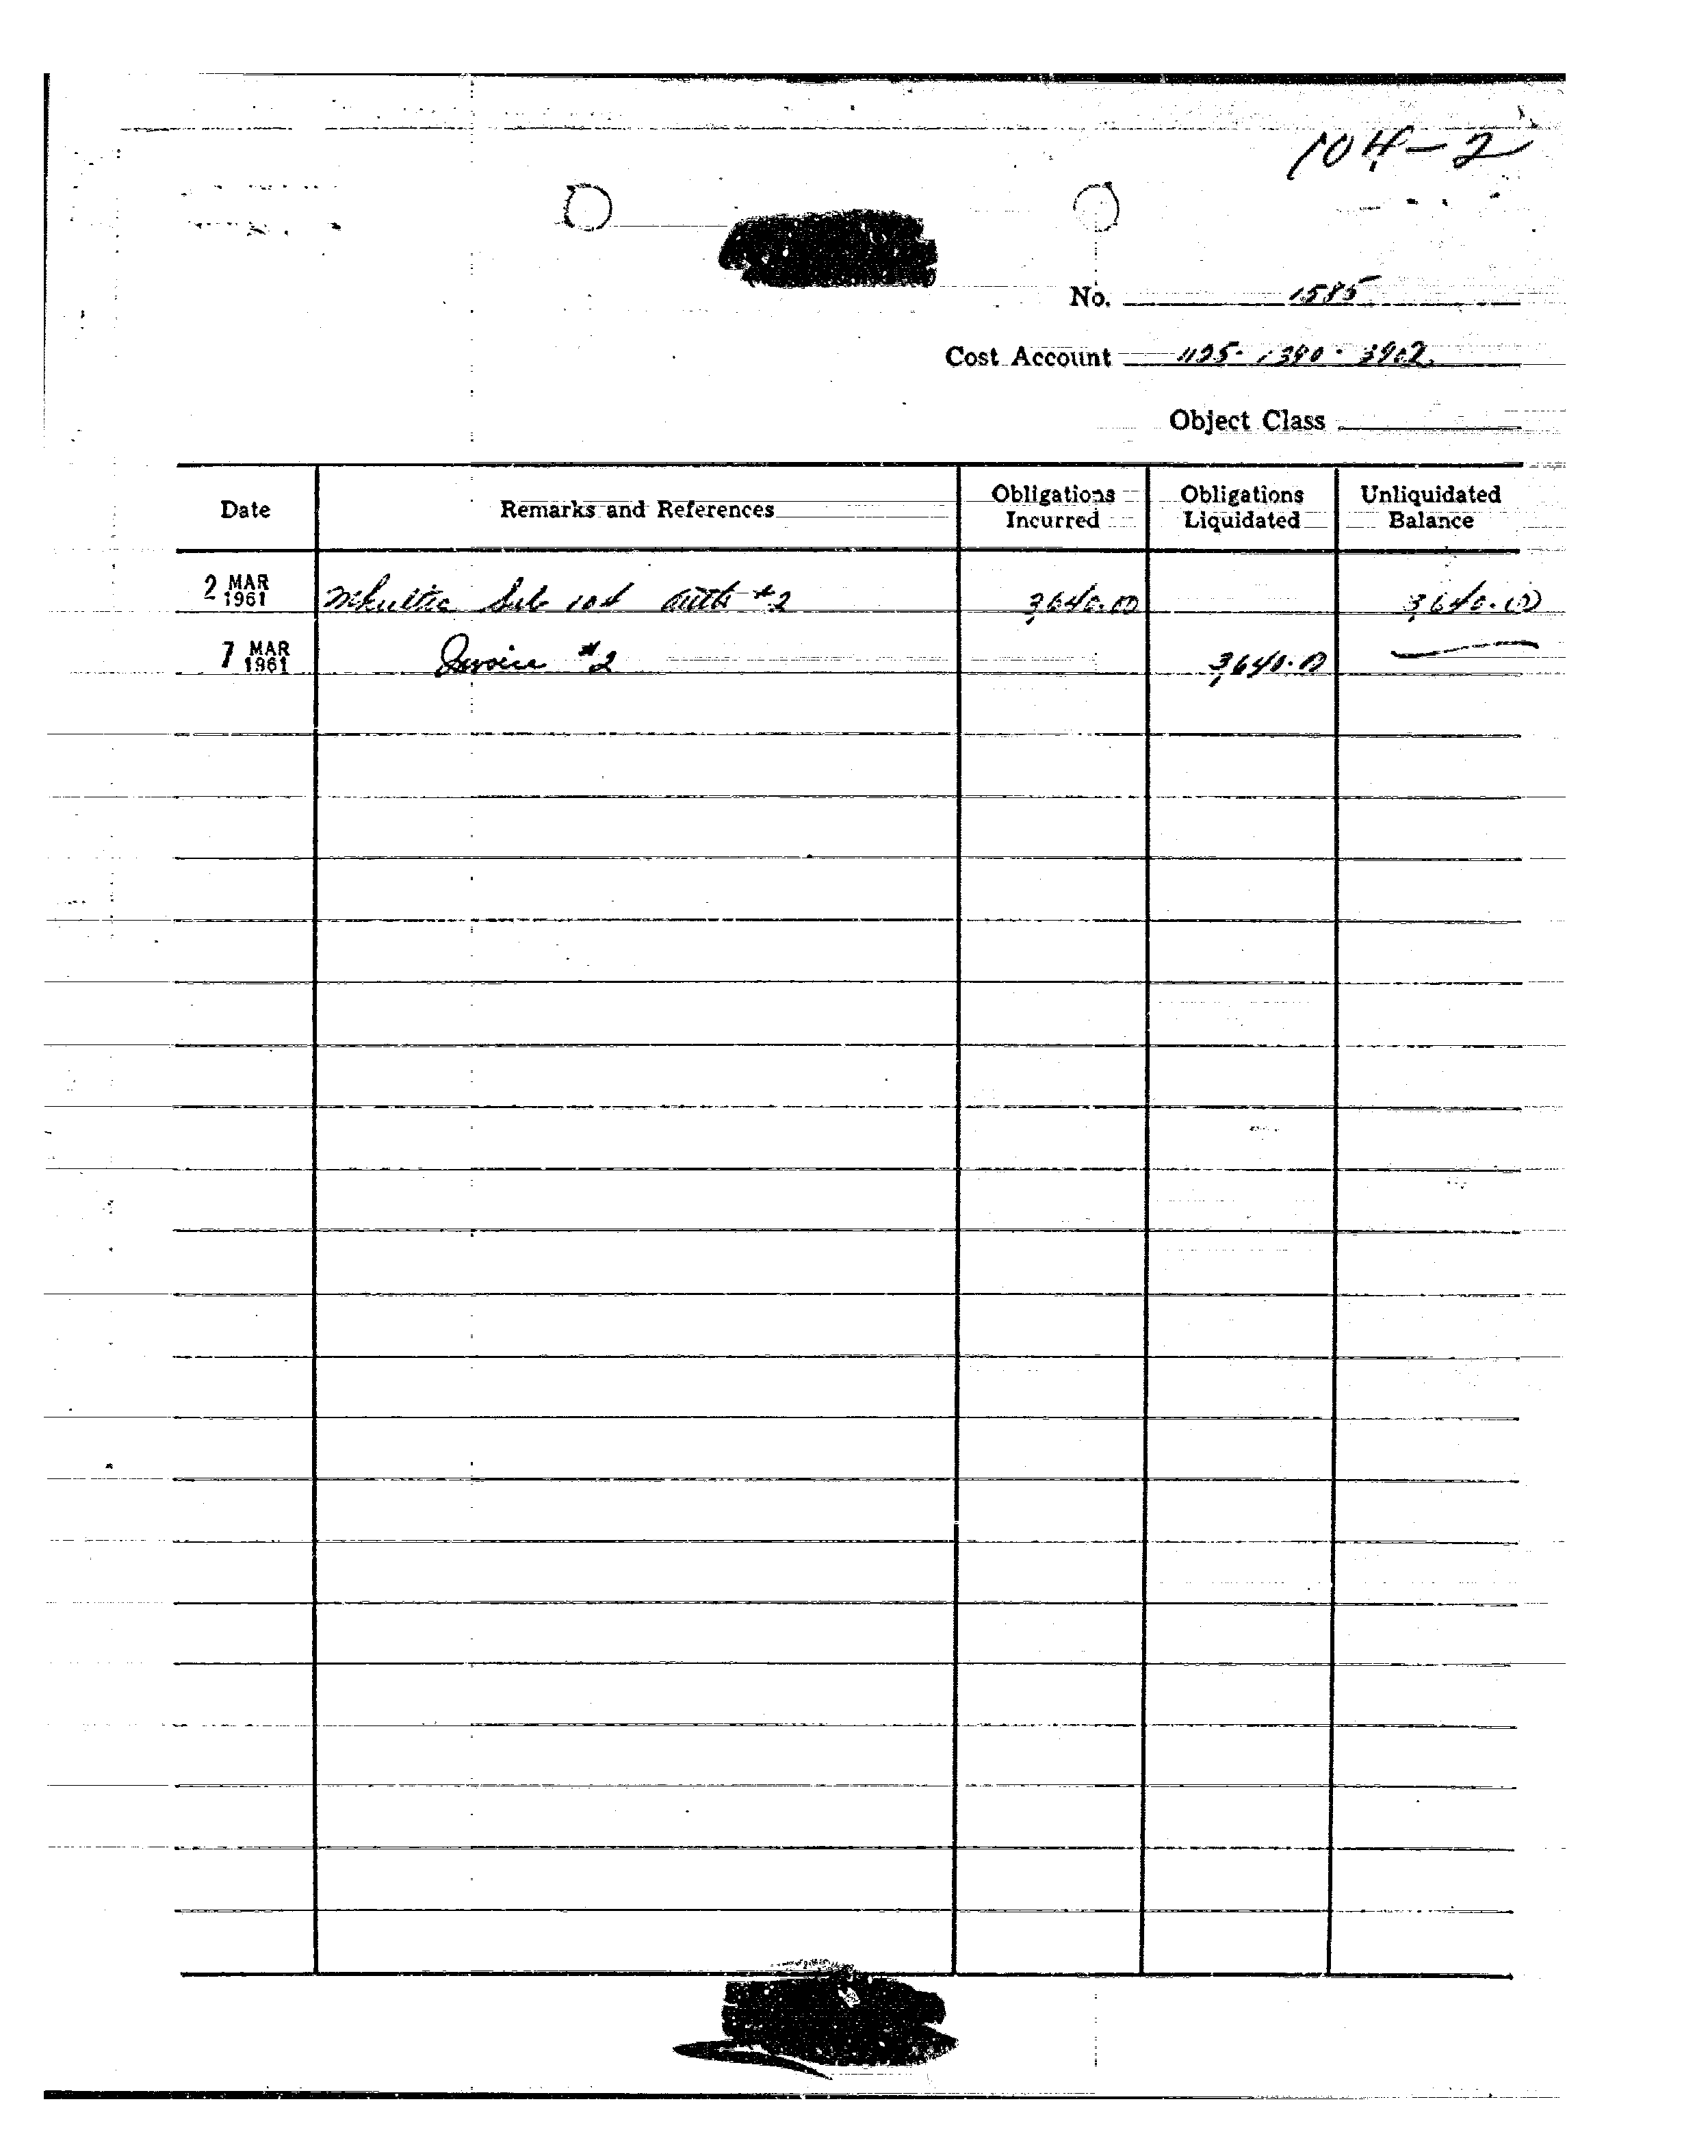 104-2
No. 1585
Cost Account 1125-1390-3902
Object Class
Date Remarks and References Obligations Incurred Obligations Liquidated Unliquidated Balance
2 MAR 1961 Mkultra Sub 104 Auth #2 3,640.00 3,640.00
7 MAR 1961 Invoice #2 3,640.00 —